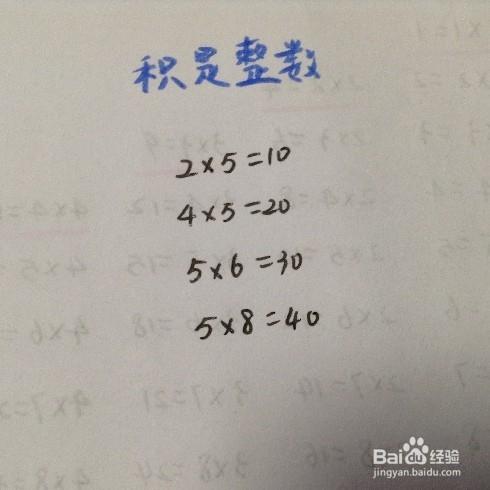 积是整数
2×5=10
4×5=20
5×6=30
5×8=40
Baidu经验
jingyan.baidu.com